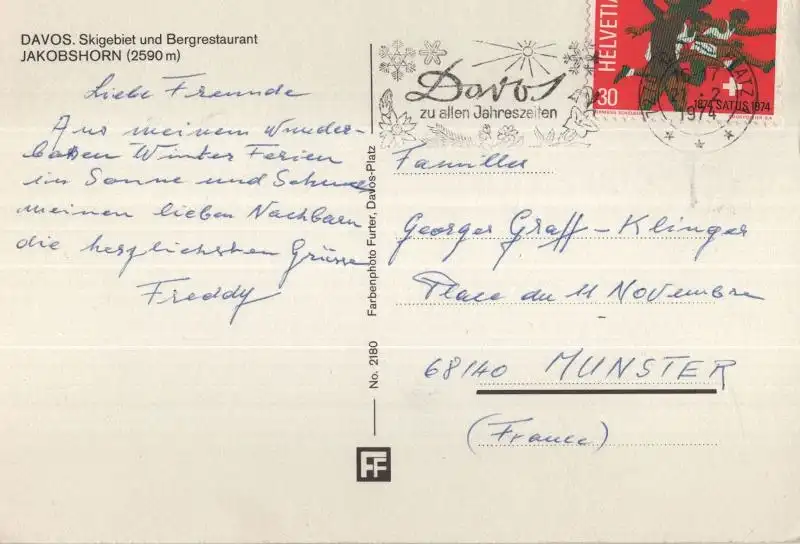 DAVOS. Skigebiet und Bergrestaurant
JAKOBSHORN (2590 m)
Liebe Freunde
Aus meinem wunder-
baren Winter Ferien
in Sonne und Schnee
meinen lieben Nachbarn
die herzlichsten Grüsse
Freddy
No. 2180 Farbenphoto Furter, Davos-Platz
FF
Davos
zu allen Jahreszeiten
HELVETIA
30
1874 SATUS 1974
21.-2.
1974
Familles
Georges Graff-Klinger
Place du 11 Novembre
68140 MUNSTER
(France)